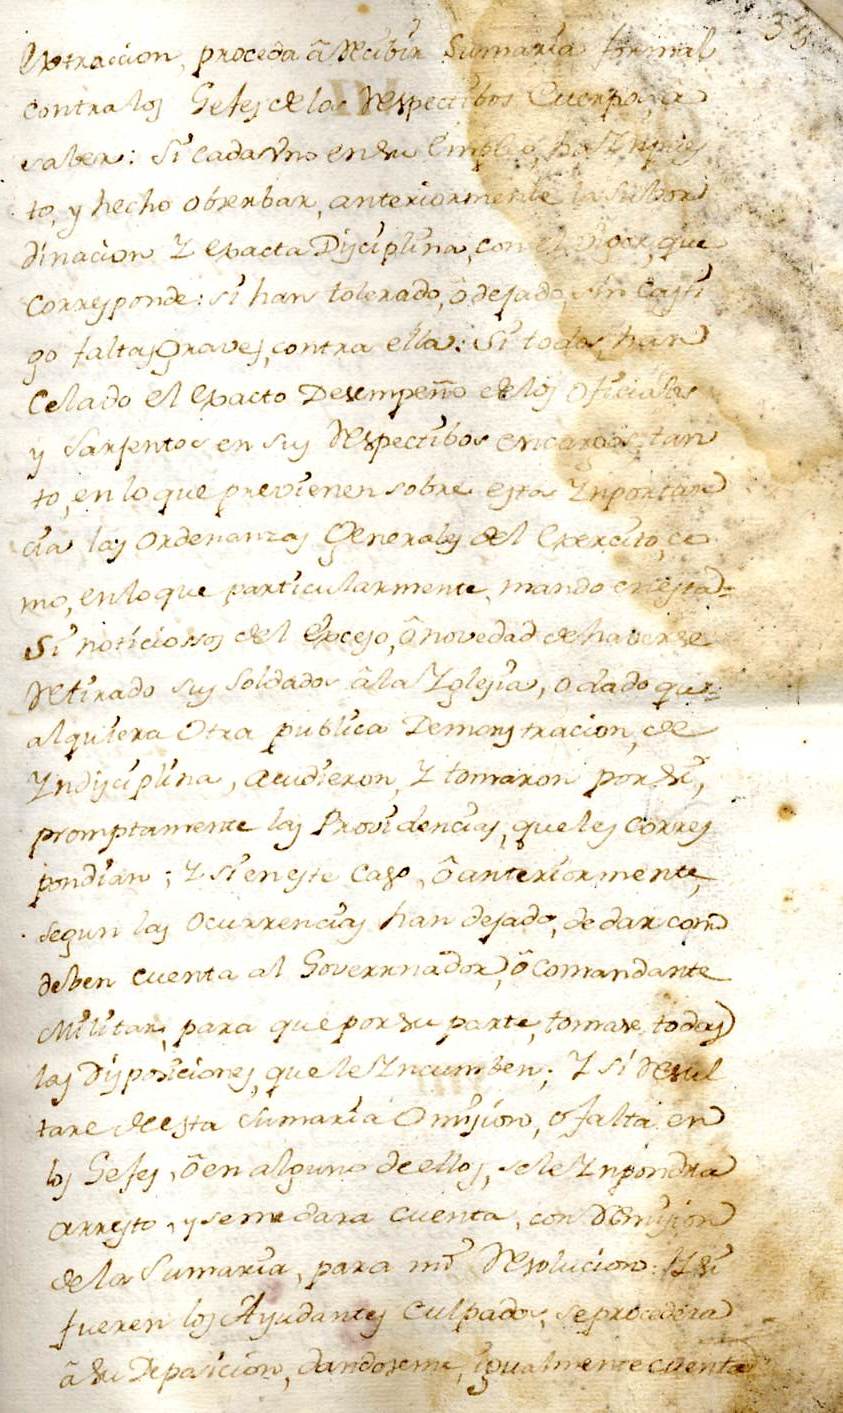 35
extraccion, proceda â Recibir Sumaria formal
contra los Gefes de los Respectibos Cuerpos, a
saber: Si cada vno en su Empleo, ha Ynpues
to, y hecho obserbar, anteriormente la Subor
dinacion Y exacta Disciplina, con el vigor, que
Corresponde: si han tolerado, ô dejado sin Casti
go faltas graves, contra ella: Si todos han
Celado el exacto Desempeño de los Oficiales
y Sarjentos en sus Respectibos encargos, tan
to, en lo que previenen sobre esta Ynportan
cia las Ordenanzas Generales del Exercito, co
mo, en lo que particularmente, mando en esta=
Si noticiosos del Exceso, ô novedad de haverse
Retirado sus Soldados â la Yglesia, o dado qu=
alquiera Otra publica Demonstracion, de
Yndisciplina, acudieron, Y tomaron por si,
promptamente las Providencias, que les Corres
pondian; Y si en este Caso, ô anteriormente,
segun las Ocurrencias han dejado, de dar como
deben cuenta al Governador, ô Comandante
Militar, para que por su parte, tomase todas
las Disposiciones, que le Yncumben; Y si Resul
tare de esta Sumaria Omision, o falta en
los Gefes, ô en alguno de ellos, se le Ynpondra
arresto, y se me dara cuenta, con Remision
de la Sumaria, para mi Resolucion: Y si
fueren los Ayudantes Culpados, se procedera
â su Deposicion, dandoseme, igualmente cuenta